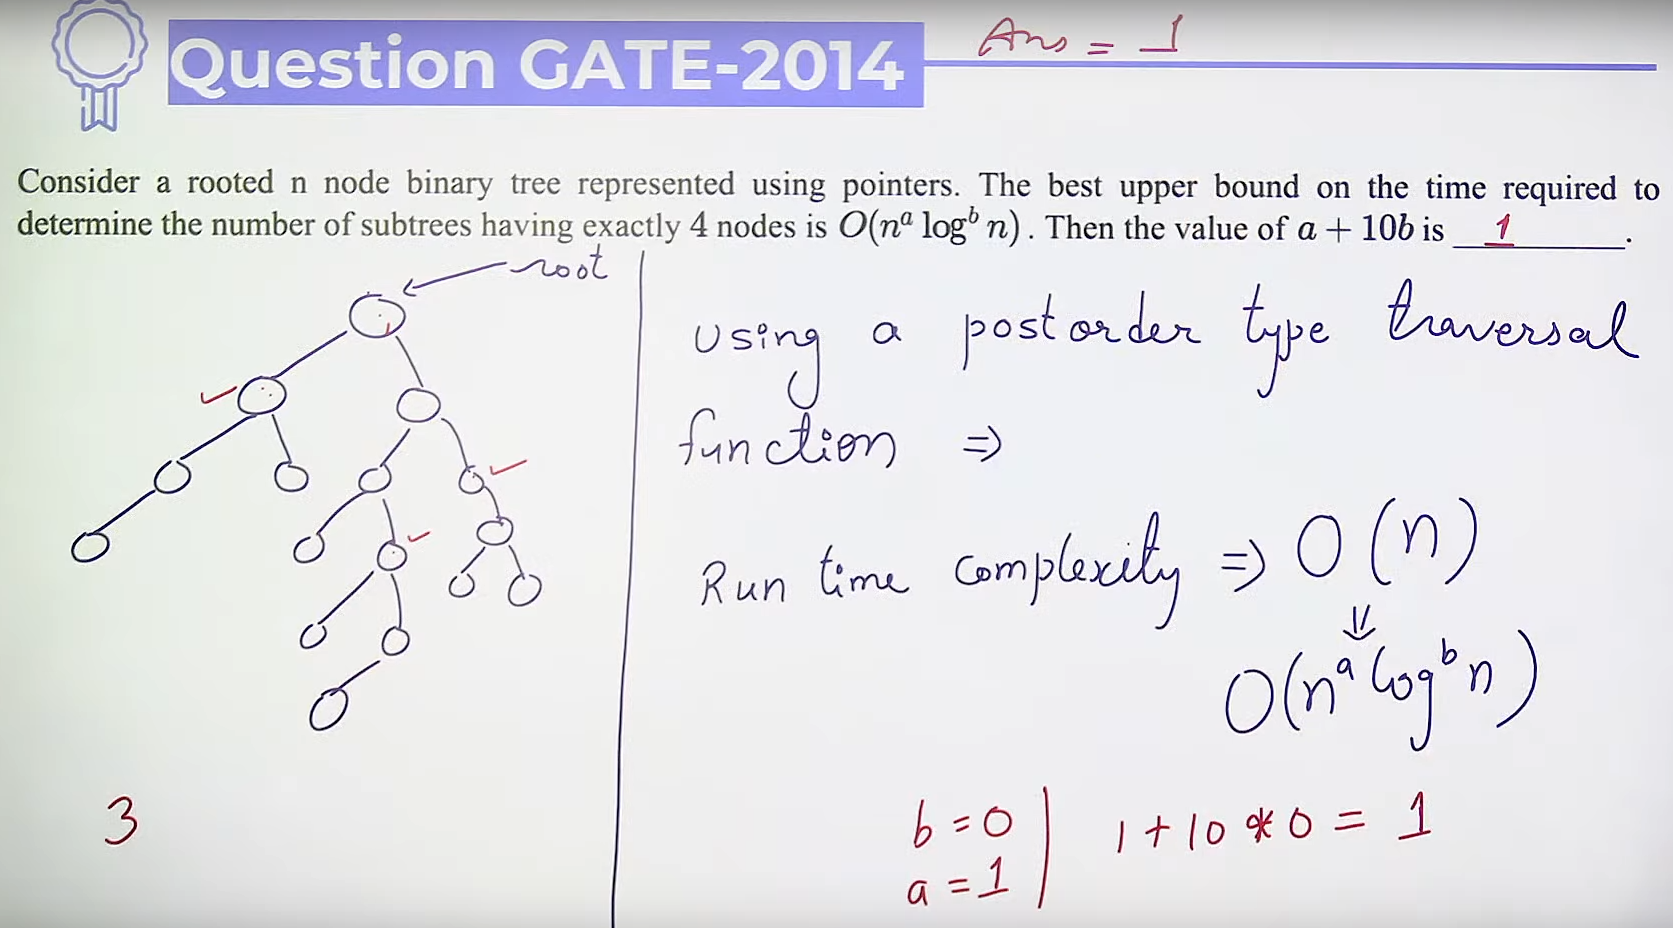 Question GATE-2014
Ans = 1
Consider a rooted n node binary tree represented using pointers. The best upper bound on the time required to
determine the number of subtrees having exactly 4 nodes is O(nᵃ logᵇ n). Then the value of a + 10b is 1.
root
Using a postorder type traversal
function ⇒
Run time complexity ⇒ O(n)
⇓
O(nᵃ logᵇ n)
3
b = 0
a = 1
1 + 10 * 0 = 1